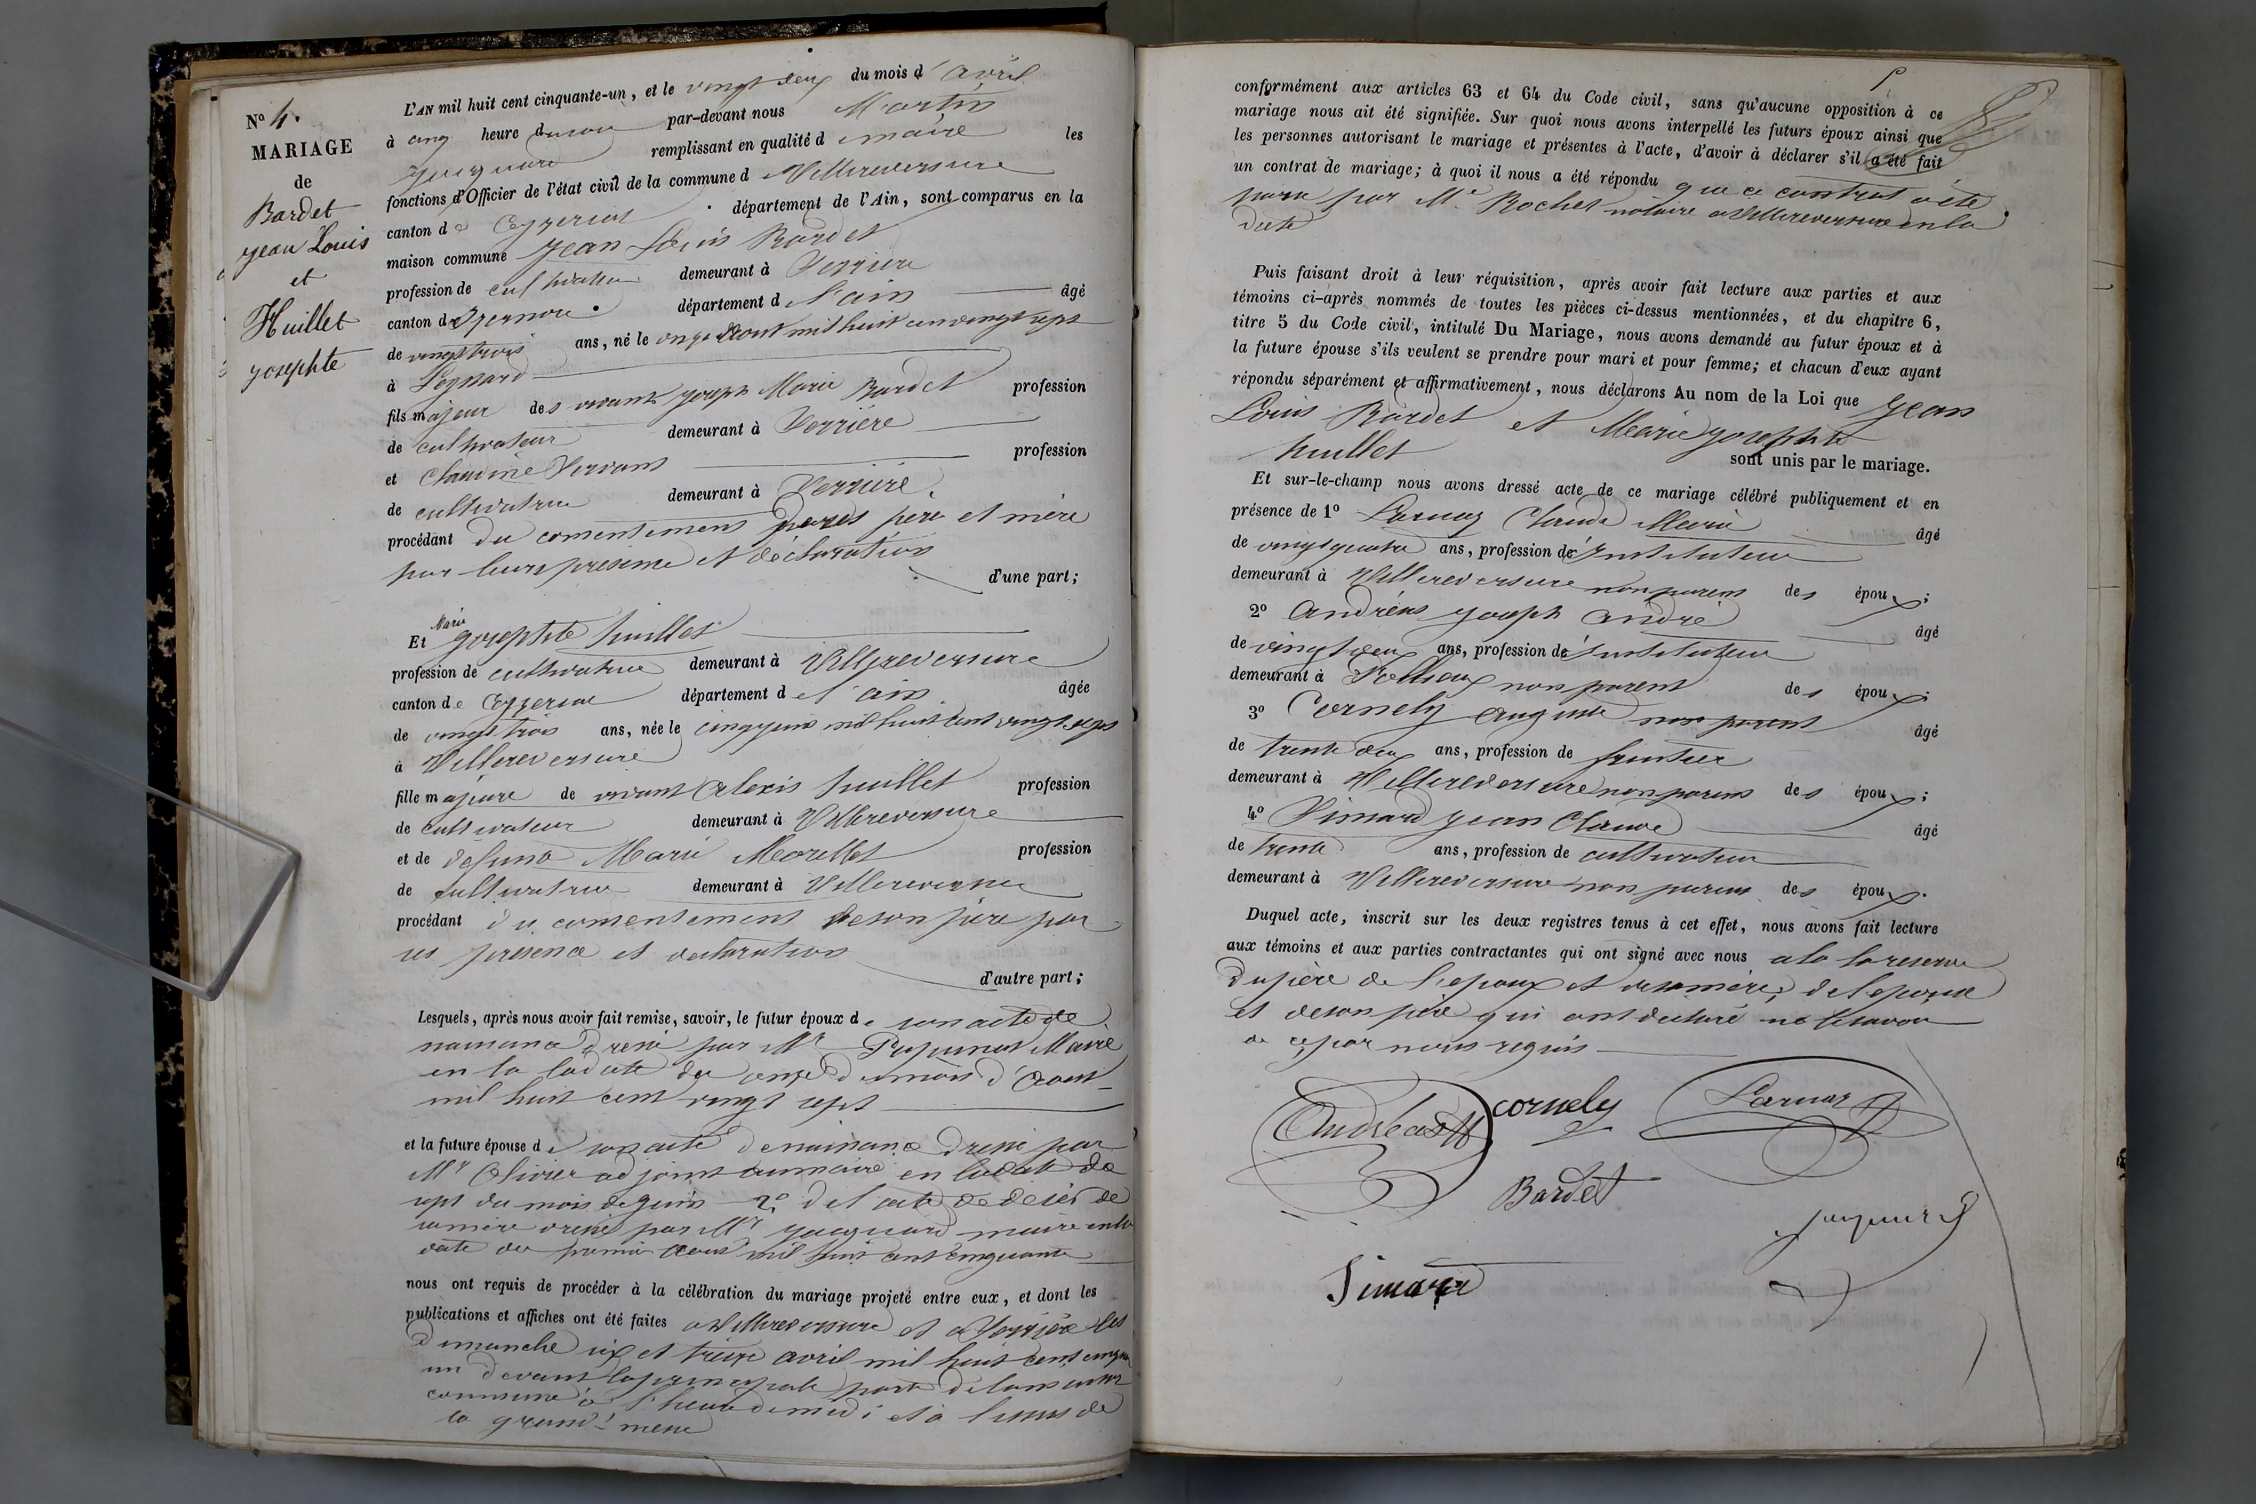 N° 4.
MARIAGE
de
Bardet
jean Louis
et
Huillet
josephte
L'AN mil huit cent cinquante-un, et le vingt deux du mois d'avril
à cinq heure du soir par-devant nous Martin
jacquard remplissant en qualité d maire les
fonctions d'Officier de l'état civil de la commune d Villereversure
canton de Ceyzeriat département de l'Ain, sont comparus en la
maison commune jean Louis Bardet
profession de cultivateur demeurant à Verriere
canton d département d l'ain âgé
de vingt trois ans, né le onze Aout mil huit cent vingt sept
à
fils majeur des vivants joseph Marie Bardet profession
de cultivateur demeurant à Verriére
et Claudine profession
de cultivatrice demeurant à Verriére.
procédant du consentement de ses pere et mére
par leurs présence et déclaration
d'une part;
Marie
Et josephte huillet
profession de cultivatrice demeurant à Villereversure
canton de Ceyzeriat département de l'ain âgée
de vingt trois ans, née le cinq juin mil huit cent vingt sept
à Villereversure
fille majeure de vivant Alexis huillet profession
de cultivateur demeurant à Villereversure
et de défunte Marie Morellet profession
de cultivatrice demeurant à Villereversure
procédant du consentement de son pére par
ses présence et déclaration
d'autre part;
Lesquels, après nous avoir fait remise, savoir, le futur époux de son acte de
naissance dressé par Mr Maire
en la date du onze du mois d'Aout
mil huit cent vingt sept
et la future épouse de son acte de naissance dressé par
Mr Olivier adjoint au maire en la date du
sept du mois de juin 2° de l'acte de décés de
sa mère dressé par Mr jacquard maire en la
date du premier Aout mil huit cent cinquante
nous ont requis de procéder à la célébration du mariage projeté entre eux, et dont les
publications et affiches ont été faites a Villereversure et a Verriére les
dimanche six et treize avril mil huit cent cinquante
un devant la principale porte de la maison
commune à l'heure de midi et à l'issus de
la grand' messe
conformément aux articles 63 et 64 du Code civil, sans qu'aucune opposition à ce
mariage nous ait été signifiée. Sur quoi nous avons interpellé les futurs époux ainsi que
les personnes autorisant le mariage et présentes à l'acte, d'avoir à déclarer s'il a été fait
un contrat de mariage; à quoi il nous a été répondu que ce contrat a été
par Me Rochet notaire a Villereversure en la
date
Puis faisant droit à leur réquisition, après avoir fait lecture aux parties et aux
témoins ci-après nommés de toutes les pièces ci-dessus mentionnées, et du chapitre 6,
titre 5 du Code civil, intitulé Du Mariage, nous avons demandé au futur époux et à
la future épouse s'ils veulent se prendre pour mari et pour femme; et chacun d'eux ayant
répondu séparément et affirmativement, nous déclarons Au nom de la Loi que jean
Louis Bardet et Marie josephte
huillet sont unis par le mariage.
Et sur-le-champ nous avons dressé acte de ce mariage célébré publiquement et en
présence de 1° Larnaz Claude Marie âgé
de vingt quatre ans, profession d'instituteur
demeurant à Villereversure non parent des époux;
2° Andréas joseph André âgé
de vingt deux ans, profession d'instituteur
demeurant à non parent des époux;
3° Cornely Auguste non parent âgé
de trente deux ans, profession de
demeurant à Villereversure non parent des époux;
4° Simard jean Claude âgé
de trente ans, profession de cultivateur
demeurant à Villereversure non parent des époux.
Duquel acte, inscrit sur les deux registres tenus à cet effet, nous avons fait lecture
aux témoins et aux parties contractantes qui ont signé avec nous a la reserve
du père de l'epoux et de sa mére, de l'epouse
et de son pére qui ont declaré ne le savoir
de ce par nous requis
Andréas
cornely
Larnaz
Bardet
jacquard
Simard